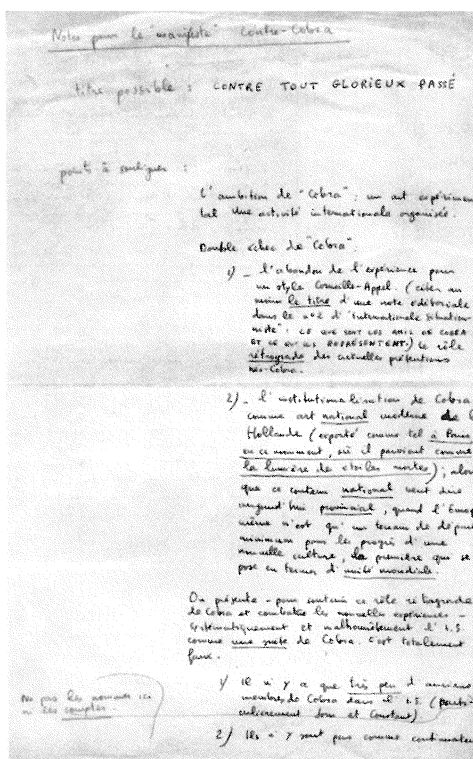 Notes pour le "manifeste" Contre-Cobra
titre possible : CONTRE TOUT GLORIEUX PASSÉ
points à souligner :
L'ambition de "Cobra" : un art expérimen
tal une activité internationale organisée.
Double échec de "Cobra".
1) - l'abandon de l'expérience pour
un style Corneille-Appel. (citer au
moins le titre d'une note éditoriale
dans le n°2 d'"Internationale Situation
niste" : CE QUE SONT LES AMIS DE COBRA
ET CE QU'ILS REPRÉSENTENT.) Le rôle
rétrograde des actuelles prétentions
néo-Cobra.
2) - l'institutionnalisation de Cobra
comme art national moderne de
Hollande (exporté comme tel à Paris
en ce moment, où il parvient comme
la lumière des étoiles mortes) ; alors
que ce contenu national veut dire
aujourd'hui provincial, quand l'Europ
même n'est qu'un terrain de dépar
minimum pour le progrès d'une
nouvelle culture, la première qui se
pose en termes d'unité mondiale.
On présente - pour soutenir ce rôle rétrograde
de Cobra et combattre les nouvelles expériences -
systématiquement et malhonnêtement l'I.S.
comme une suite de Cobra. C'est totalement
faux.
1) il n'y a que très peu d'anciens
membres de Cobra dans l'I.S. (parti-
culièrement Jorn et Constant)
ne pas les nommer ici
ni les compter.
2) Ils n'y sont pas comme continuateur